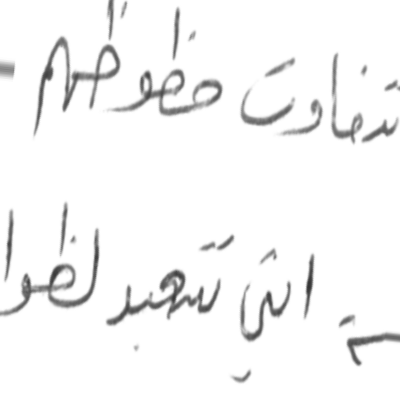 تتفاوت حظوظهم
التي تتعبد لظوا